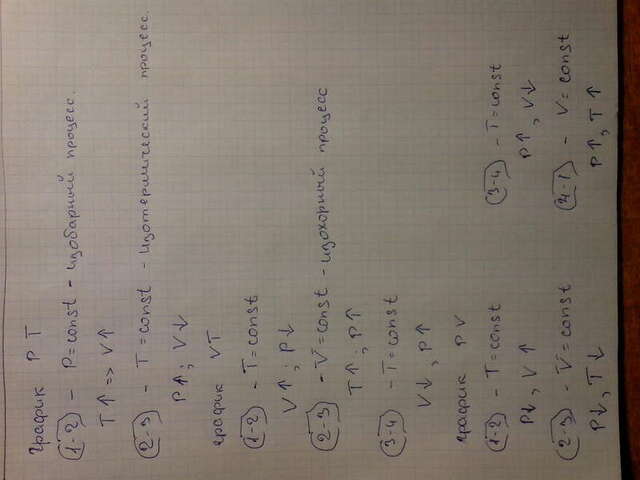 График P T
(1-2) - P = const - изобарный процесс.
T↑ => V↑
(2-3) - T = const - Изотермический процесс.
P↑; V↓
график VT
(1-2) - T = const
V↑; P↓
(2-3) - V = const - изохорный процесс
T↑; P↑
(3-4) - T = const
V↓, P↑
график PV
(1-2) - T = const
P↓, V↑
(2-3) - V = const
P↓, T↓
(3-4) - T = const
P↑, V↓
(4-1) - V = const
P↑, T↑